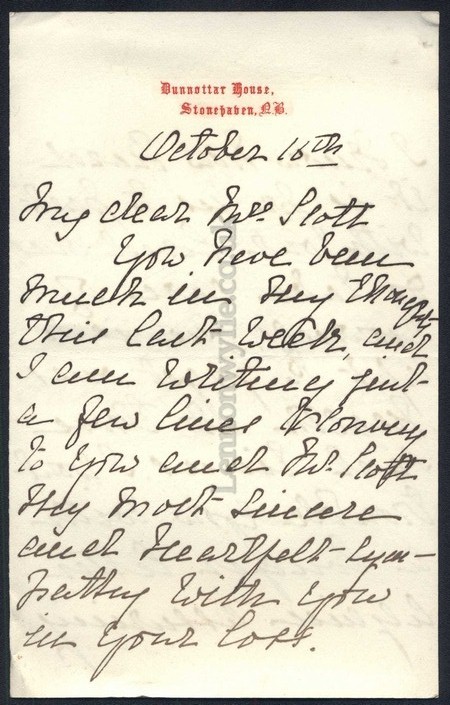 Dunnottar House,
Stonehaven, N.B.
October 16th
My dear Mrs Scott
You have been
much in my thoughts
this last week, and
I am writing just
a few lines to convey
to you and Mr. Scott
my most sincere
and heartfelt sym-
pathy with you
in your loss.